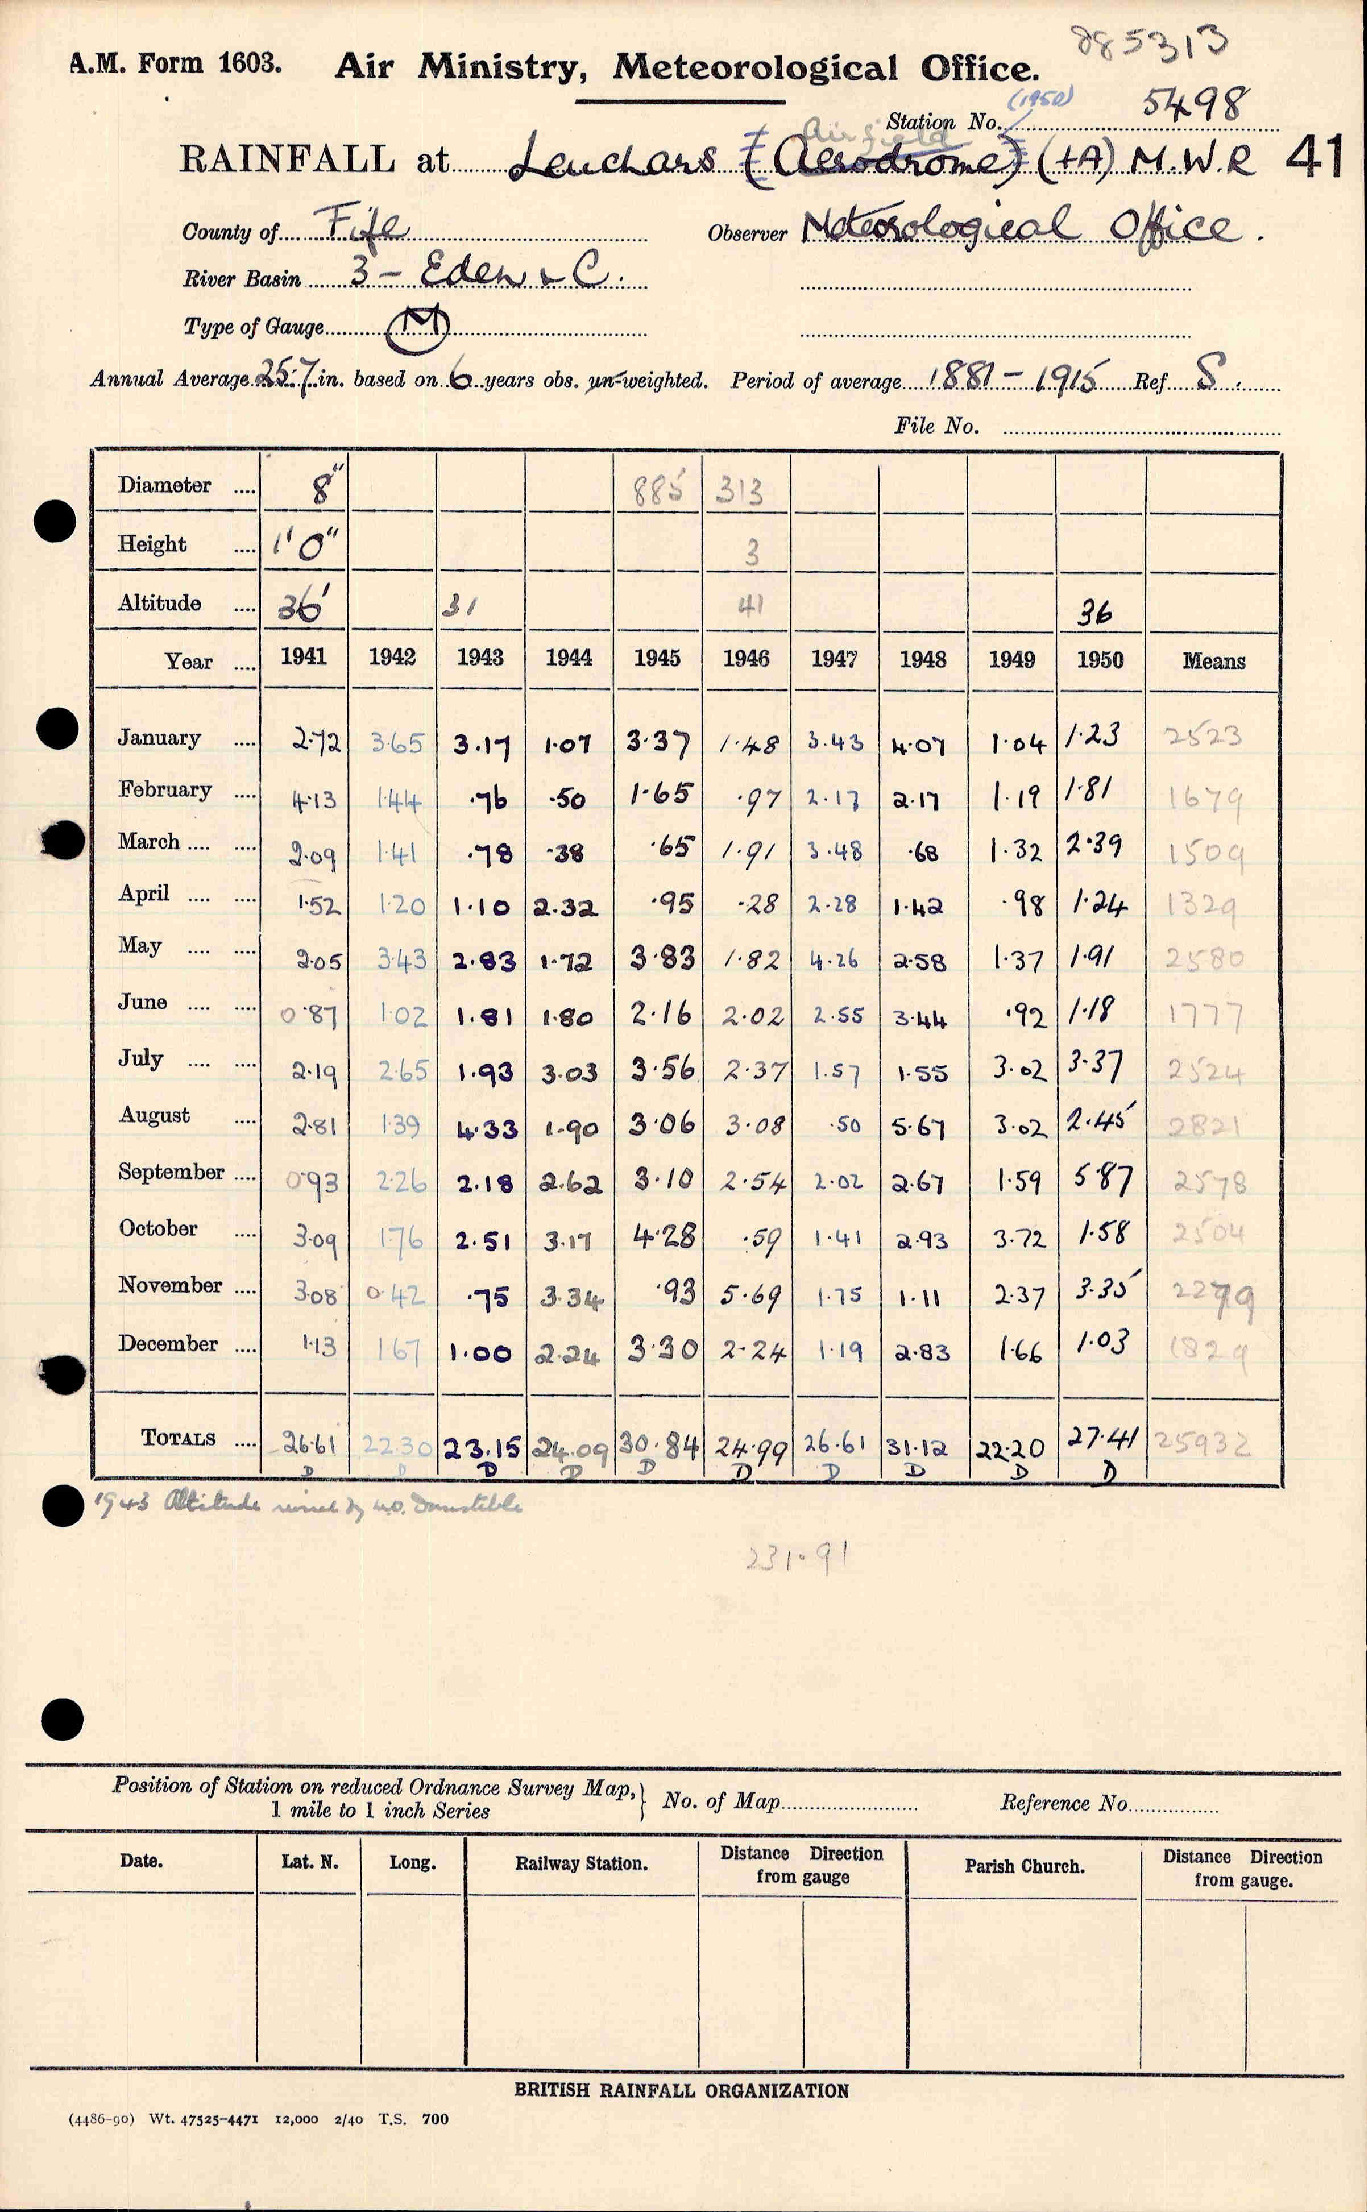 885313
A.M. Form 1603. Air Ministry, Meteorological Office.
(1950)
Station No. 5498
Airfield
RAINFALL at Leuchars (Aerodrome) (+A) M.W.R 41
County of Fife Observer Meteorological Office.
River Basin 3 - Eden & C.
Type of Gauge M
Annual Average 25.7 in. based on 6 years obs. un-weighted. Period of average 1881 - 1915 Ref S.
File No.
Diameter .... 8" 885 313
Height .... 1'0" 3
Altitude .... 36' 31 41 36
Year .... 1941 1942 1943 1944 1945 1946 1947 1948 1949 1950 Means
January .... 2.72 3.65 3.17 1.07 3.37 1.48 3.43 4.07 1.04 1.23 2523
February .... 4.13 1.44 .76 .50 1.65 .97 2.17 2.17 1.19 1.81 1679
March .... .... 2.09 1.41 .78 .38 .65 1.91 3.48 .68 1.32 2.39 1509
April .... .... 1.52 1.20 1.10 2.32 .95 .28 2.28 1.42 .98 1.24 1329
May .... .... 2.05 3.43 2.83 1.72 3.83 1.82 4.26 2.58 1.37 1.91 2580
June .... .... 0.87 1.02 1.81 1.80 2.16 2.02 2.55 3.44 .92 1.18 1777
July .... .... 2.19 2.65 1.93 3.03 3.56 2.37 1.57 1.55 3.02 3.37 2524
August .... 2.81 1.39 4.33 1.90 3.06 3.08 .50 5.67 3.02 2.45 2821
September .... 0.93 2.26 2.18 2.62 3.10 2.54 2.02 2.67 1.59 5.87 2578
October .... 3.09 1.76 2.51 3.17 4.28 .59 1.41 2.93 3.72 1.58 2504
November .... 3.08 0.42 .75 3.34 .93 5.69 1.75 1.11 2.37 3.35 2279
December .... 1.13 1.67 1.00 2.24 3.30 2.24 1.19 2.83 1.66 1.03 1829
TOTALS .... 26.61 22.30 23.15 24.09 30.84 24.99 26.61 31.12 22.20 27.41 25932
D D D D D D D D D D
1943 Altitude revised by M.O. Dunstable
231.91
Position of Station on reduced Ordnance Survey Map, } No. of Map Reference No.
1 mile to 1 inch Series
Date. Lat. N. Long. Railway Station. Distance Direction from gauge Parish Church. Distance Direction from gauge.
BRITISH RAINFALL ORGANIZATION
(4486-90) Wt. 47525-4471 12,000 2/40 T.S. 700